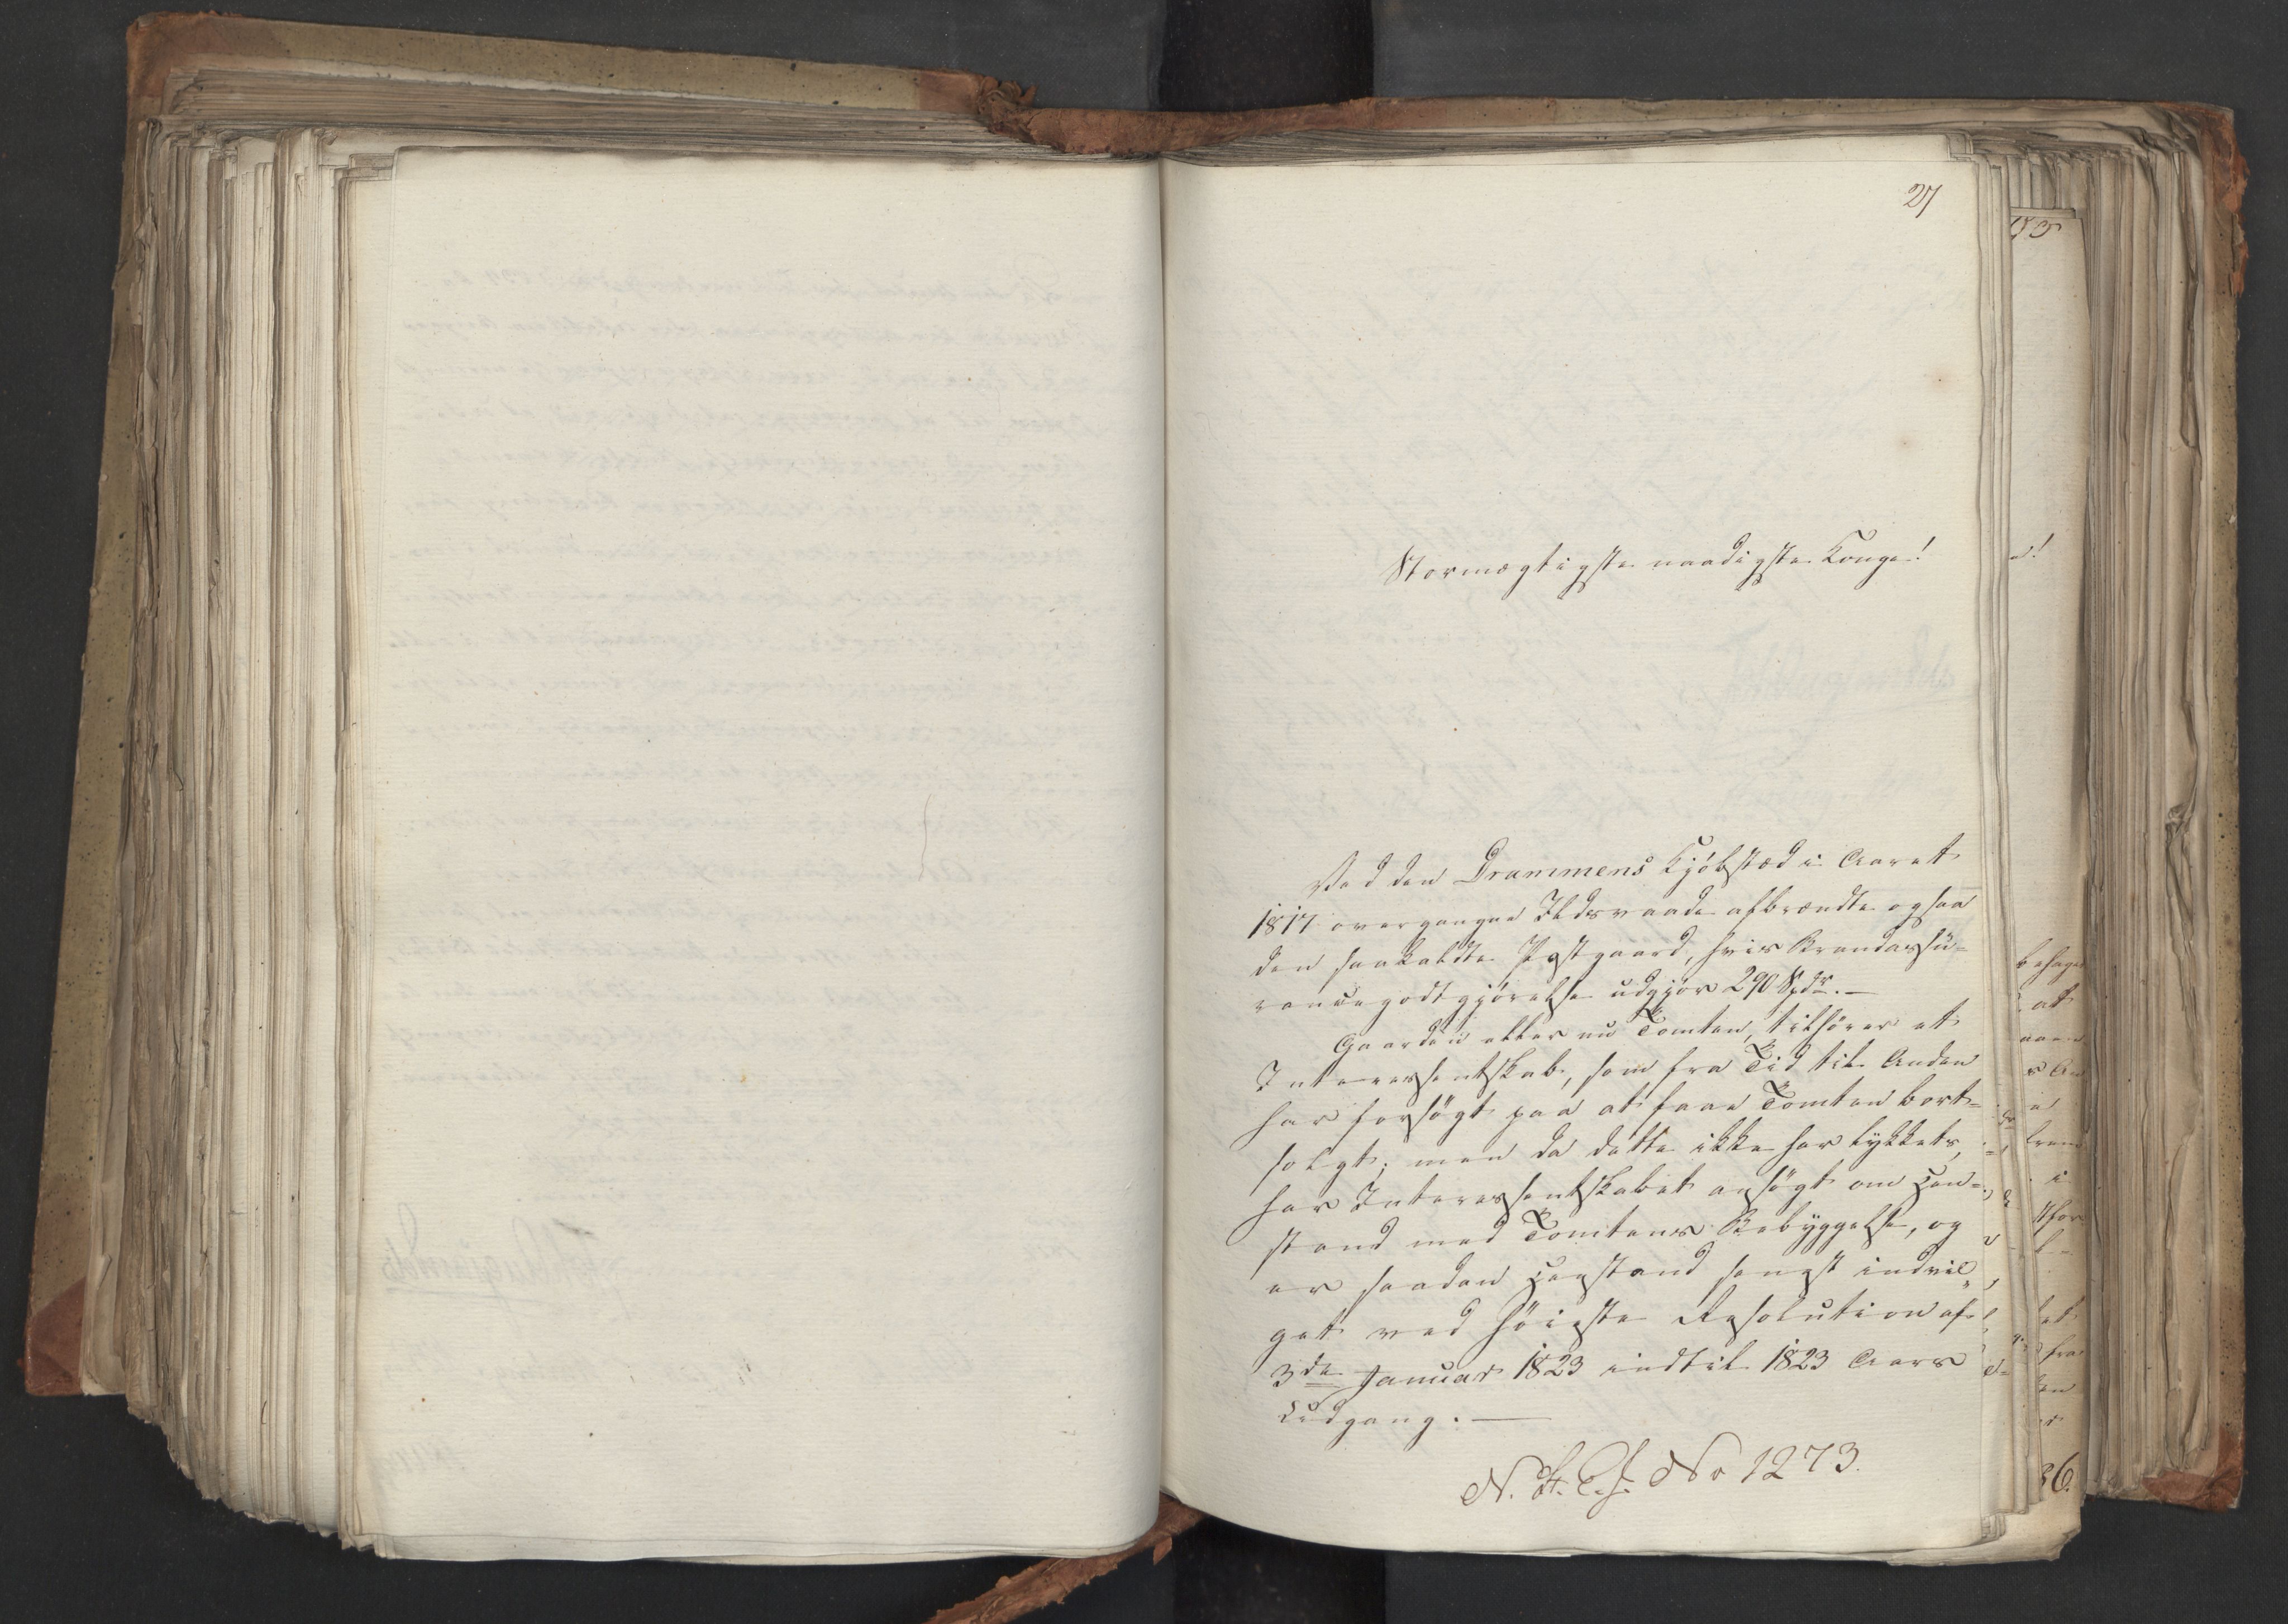 27
Stormægtigste naadigste Konge!
Ved den Drammens Kjøbstæd i Aaret
1817 overgangne Ildsvaade afbrændte ogsaa
den saakaldte Postgaard, hvis Brandassu=
rancegodtgjørelse udgjør 290 Spdr. —
Gaarden eller nu Tomten, tilhører et
Interessentskab, som fra Tid til Anden
har forsøgt paa at faae Tomten bort=
solgt; men da dette ikke har lykkets,
har Interessentskabet ansøgt om Hen=
stand med Tomtens Bebyggelse, og
er saadan Henstand senest indvil=
get ved høieste Resolution af
3de Januar 1823 indtil 1823 Aars
Udgang. —
No 1273.